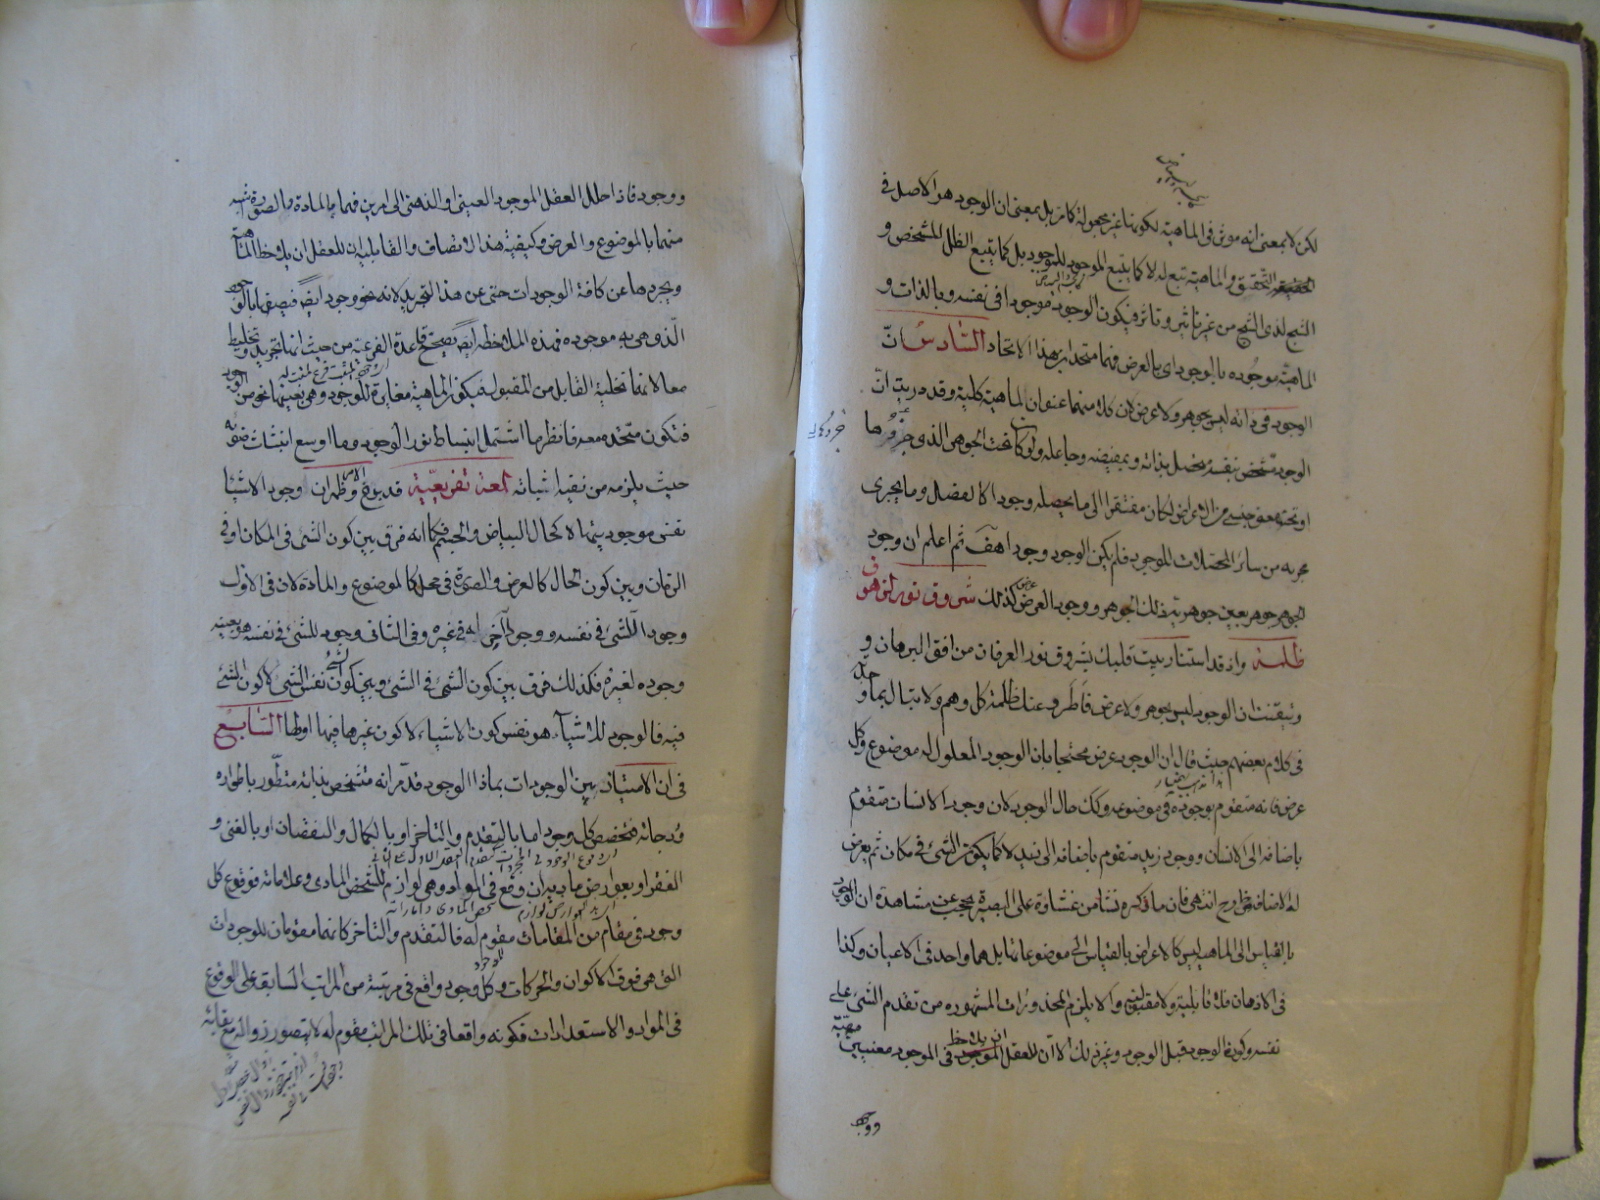 لكن لا بمعنى انه موثر فى الماهية لكونها غير مجعولة كما مر بل بمعنى ان الوجود هو الاصل فى
التحقق والماهية تبع له لا كما يتبع الموجود للموجود بل كما يتبع الظل للشخص و
الشبح لذى الشبح من غير تاثير وتاثر فيكون الوجود موجودا فى نفسه وبالذات و
الماهية موجوده بالوجود اى بالعرض فهما متحدان بهذا الاتحاد السادس انّ
الوجود فى ذاته ليس بجوهر ولا عرض لان كلا منهما عنوان لماهية كلية وقد دريت انّ
الوجود متشخص بنفسه متحصل بذاته وبمفيضه وجاعله ولو كان تحت الجوهر الذى
او تحت معنى جنسى من الاعراض لكان مفتقرا الى ما يحصله وجودا كالفصل وما يجرى
مجريه من سائر المحصلات للوجود فلم يكن الوجود وجودا هف ثم اعلم ان وجود
الجوهر جوهر بعين جوهرية ذلك الجوهر ووجود العرض عرض كذلك شروق نور لزهوق
ظلمة واذ قد استنار بيت قلبك بشروق نور العرفان من افق البرهان و
وتيقنت ان الوجود ليس بجوهر ولا عرض فاطرد عنك ظلمة كل وهم ولا تبال بما
فى كلام بعضهم حيث قال ان الوجود عرض محتجا بان الوجود المعلول له موضوع وكل
عرض فانه متقوم بوجوده فى موضوعه وكك حال الوجود لان وجود الانسان متقوم
باضافه الى الانسان ووجود زيد متقوم باضافه الى زيد لا كما يكون الشئ فى مكان ثم يعرض
له الاضافه من خارج انتهى فان ما ذكره نشا من غشاوة على البصيرة يحجب عن مشاهدة ان الوجود
بالقياس الى الماهيه ليس كالاعراض بالقياس الى موضوعاتها بل هما واحد فى الاعيان وكذا
فى الاذهان فلا قابلية ولا مقبولية والا يلزم المحذورات المشهوره من تقدم الشئ على
نفسه وكون الوجود قبل الوجود وغير ذلك الا ان للعقل ان يلاحظ فى الموجود معنيين مهية
ووجود
ووجود فاذا حلل العقل الموجود العينى او الذهنى الى امرين فهما بالمادة والصورة شبه
منهما بالموضوع والعرض وكيفية هذا الاتصاف والقابلية ان للعقل ان يلاحظ الماهية
ويجردها عن كافة الوجودات حتى عن هذا التجريد لانه نحو وجود ايضا فيصفها بالوجود
الذى هى به موجوده فهذه الملاحظه ايضا تصحح قاعدة الفرعية من حيث انها تجريد وتخليط
معا لانها تخلية القابل من المقبول فيكون الماهية مغايرة للوجود وهى بعينها نحو من الوجود
فتكون متحده معه فانظر ما اشتمل انبساط نور الوجود وما اوسع انبثاث ضوئه
حيث يلزمه من نفيه اثباته لمعة تفريعية قد بزغ الامر وظهر ان وجود الاشيا
نفس موجوديتها لا كحال البياض والجسم فكما انه فرق بين كون الشئ فى المكان او فى
الزمان وبين كون الحال كالعرض والصورة فى محله كالموضوع والمادة لان فى الاول
وجودا للشئ فى نفسه ووجودا اخر له فى غيره وفى الثانى وجود للشئ فى نفسه هو بعينه
وجوده لغيره فكذلك فرق بين كون الشئ فى الشئ وبين كون الشئ نفس الشئ لا كون الشئ
فيه فالوجود للاشياء هو نفس كون الاشياء لا كون غيرها فيها اولها السابع
فى ان الامتياز بين الوجودات بماذا الوجود قد مر انه متشخص بذاته متطور باطواره
ودرجاته فتخصص كل وجود اما بالتقدم والتاخر او بالكمال والنقصان او بالغنى و
الفقر او بعوارض ماديه ان وقع فى المواد وهى لوازم للشخص المادى وعلاماته فوقوع كل
وجود فى مقام من المقامات مقوم له فالتقدم والتاخر كانهما مقومان للوجودات
التى هى فوق الاكوان والحركات وكل وجود واقع فى مرتبة من المراتب السابقه على الوقوع
فى المواد والاستعدادات فكونه واقعا فى تلك المراتب مقوم له لا يتصور زواله مع بقائه